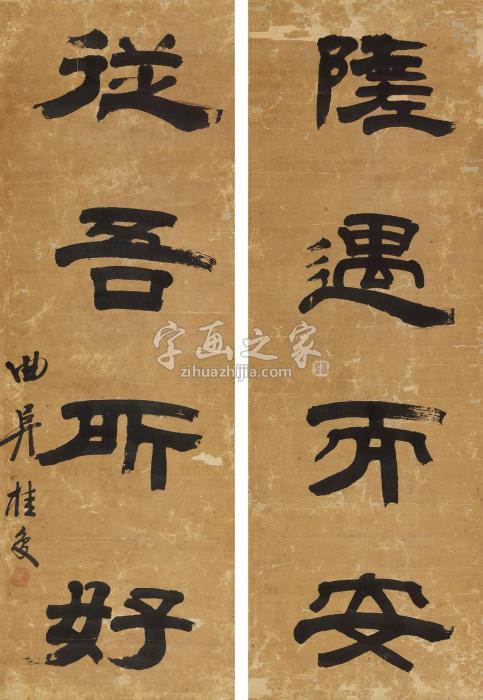 隨遇而安
從吾所好
曲阜桂复
字画之家
zihuazhijia.com